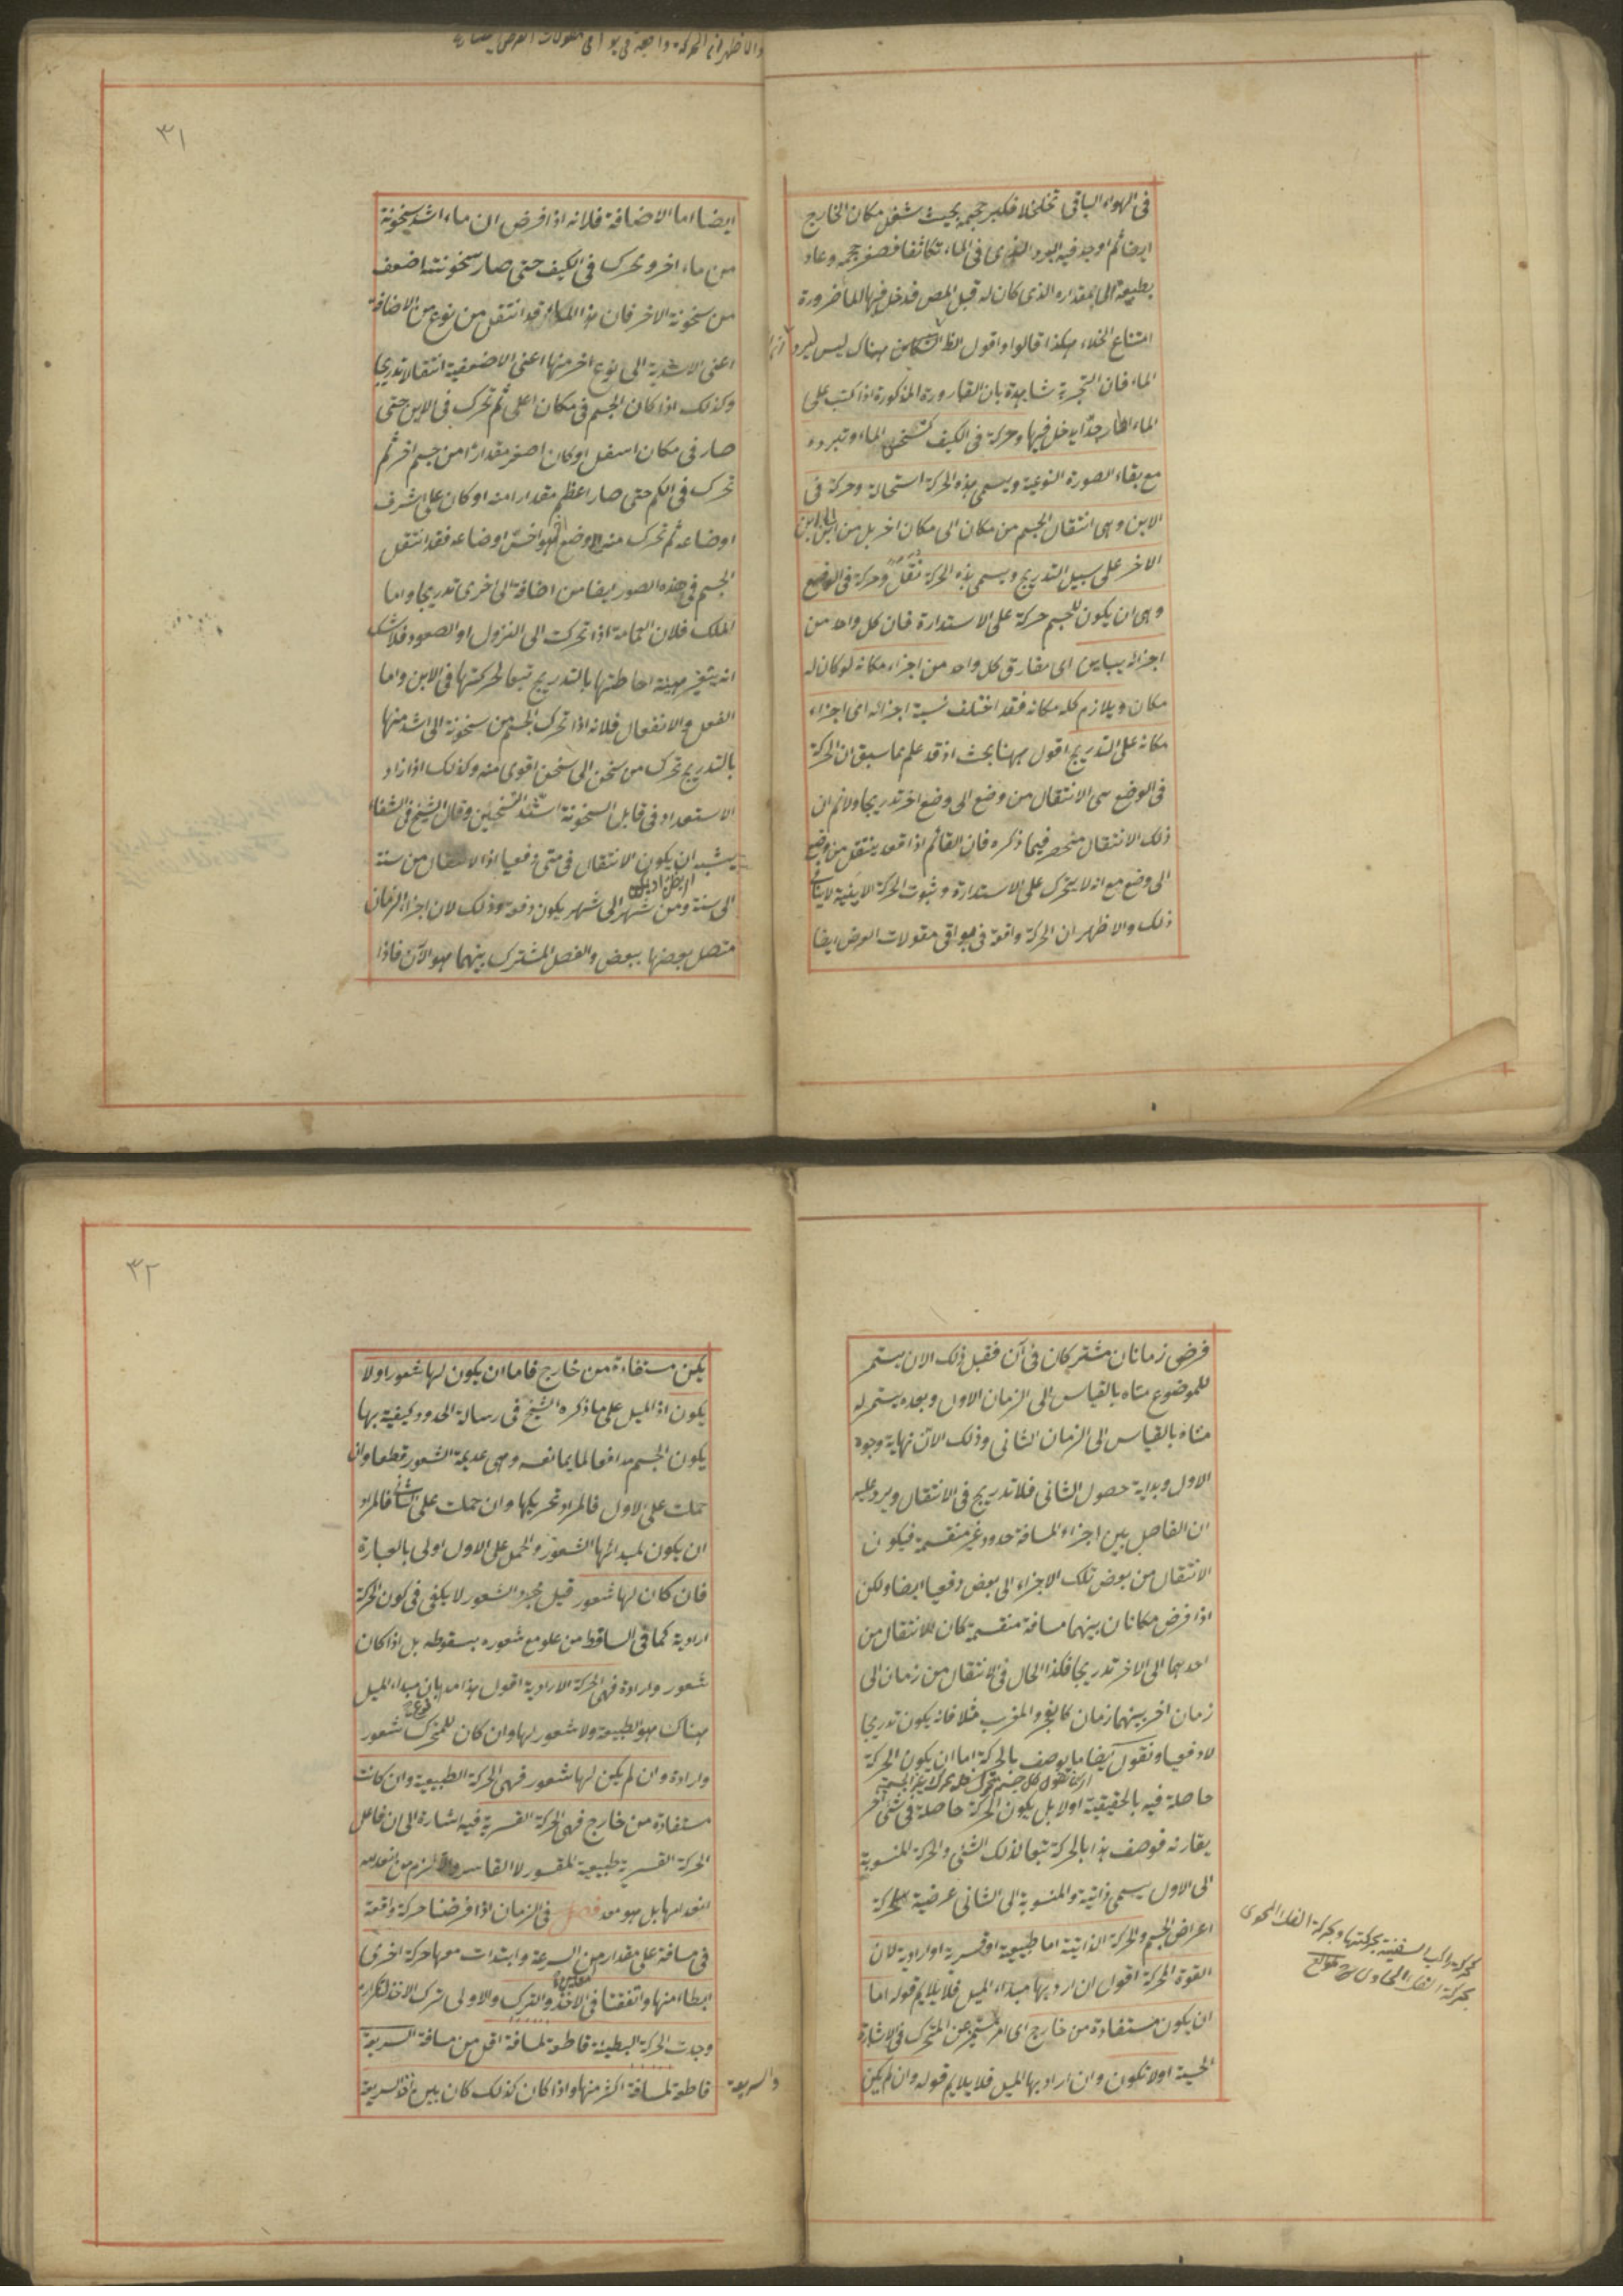 والاظهر ان الحركة واقعة في بواقي مقولات العرض ايضا
فى الهواء الباقى تخلخلا فكبر حجمه بحيث شغل مكان الخارج
ايضا ثم اوجد فيه البرد الذى فى الماء تكاثفا فصغر حجمه وعاد
بطبيعته الى المقدار الذى كان له قبل المص فدخل فيها الماء ضرورة
امتناع الخلاء هكذا قالوا واقول الظ ان التكاثف هناك ليس لبرد
الماء فان التجربة شاهدة بان القارورة المذكورة اذا كبت على
الماء الحار جدا يدخل فيها وحركة فى الكيف كتسخن الماء وتبرده
مع بقاء الصورة النوعية ويسمى هذه الحركة استحالة وحركة فى
الاين وهى انتقال الجسم من مكان الى مكان اخر بل من اين الى اين
الاخر على سبيل التدريج ويسمى هذه الحركة نقلة وحركة فى الوضع
وهى ان يكون للجسم حركة على الاستدارة فان كل واحد من
اجزائه يباين اى يفارق كل واحد من اجزاء مكانه لو كان له
مكان ويلازم كله مكانه فقد اختلف نسبة اجزائه الى اجزاء
مكانه على التدريج اقول ههنا بحث اذ قد علم مما سبق ان الحركة
فى الوضع هى الانتقال من وضع الى وضع اخر تدريجا ولا نم ان
ذلك الانتقال منحصر فيما ذكره فان القائم اذا قعد ينتقل من وضع
الى وضع مع انه لا يتحرك على الاستدارة وثبوت الحركة الاينية لا ينافى
ذلك والاظهر ان الحركة واقعة فى بواقى مقولات العرض ايضا
٣١
ايضا اما الاضافة فلانه اذا فرض ان ماء اشد سخونة
من ماء اخر وتحرك فى الكيف حتى صار سخونته اضعف
من سخونة الاخر فان هذا الماء قد انتقل من نوع من الاضافة
اعنى الاشدية الى نوع اخر منها اعنى الاضعفية انتقالا تدريجا
وكذلك اذا كان الجسم فى مكان اعلى ثم تحرك فى الاين حتى
صار فى مكان اسفل او كان اصغر مقدارا من جسم اخر ثم
تحرك فى الكم حتى صار اعظم مقدارا منه او كان على اشرف
اوضاعه ثم تحرك منه الى وضع هو اخس اوضاعه فقد انتقل
الجسم فى هذه الصور ايضا من اضافة الى اخرى تدريجا واما
الملك فلان العمامة اذا تحركت الى النزول او الصعود فلا شك
انه يتغير هيئة احاطتها بالتدريج تبعا لحركتها فى الاين واما
الفعل والانفعال فلانه اذا تحرك الجسم من سخونة الى اشد منها
بالتدريج تحرك من سخن الى سخن اقوى منه وكذلك اذا زاد
الاستعداد فى قابل السخونة اشتد التسخين وقال الشيخ فى الشفاء
يشبه ان يكون الانتقال فى متى دفعيا اذ الانتقال من سنة
الى سنة ومن شهر الى شهر يكون دفعة وذلك لان اجزاء الزمان
متصل بعضها ببعض والفصل المشترك بينهما هو الآن فاذا
فرض زمانان مشتركان فى آن فقبل ذلك الان يستمر
للموضوع متاه بالقياس الى الزمان الاول وبعده يستمر له
متاه بالقياس الى الزمان الثانى وذلك الان نهاية وجود
الاول وبداية حصول الثانى فلا تدريج فى الانتقال ويرد عليه
ان الفاصل بين اجزاء المسافة حدود غير منقسمة فيكون
الانتقال من بعض تلك الاجزاء الى بعض دفعيا ايضا ولكن
اذا فرض مكانان بينهما مسافة منقسمة كان الانتقال من
احدهما الى الاخر تدريجا فكذا الحال فى الانتقال من زمان الى
زمان اخر بينهما زمان كالفجر والمغرب مثلا فانه يكون تدريجا
لا دفعيا ونقول ايضا ما يوصف بالحركة اما ان يكون الحركة
حاصلة فيه بالحقيقة اولا بل يكون الحركة حاصلة فى شئ اخر
يقارنه فوصف هذا بالحركة تبعا لذلك الشئ والحركة المنسوبة
الى الاول يسمى ذاتية والمنسوبة الى الثانى عرضية كحركة
اعراض الجسم والحركة الذاتية اما طبيعية او قسرية او ارادية لان
القوة المحركة اقول ان اريد بها مبداء الميل فلا يلايم قوله اما
ان يكون مستفادة من خارج اى امر متميز عن المتحرك فى الاشارة
الحسية اولا تكون وان اراد بها الميل فلا يلايم قوله وان لم يكن
كحركة راكب السفينة بحركتها وحركة الفلك المحوى
بحركة الفلك الحاوى
٣٢
يكن مستفادة من خارج فاما ان يكون لها شعور اولا
يكون اذ الميل على ما ذكره الشيخ فى رسالة الحدود كيفية بها
يكون الجسم مدافعا لما يمانعه وهى عديمة الشعور قطعا وان
حملت على الاول فالمراد تحريكها وان حملت على الثانى فالمراد
ان يكون لمبدائها الشعور والحمل على الاول اولى بالعبارة
فان كان لها شعور قيل مجرد الشعور لا يكفى فى كون الحركة
ارادية كما فى الساقط من علو مع شعوره بسقوطه بل اذا كان
شعور وارادة فهى الحركة الارادية اقول هذا مد بان مبداء الميل
هناك هو الطبيعة ولا شعور لها وان كان للمتحرك شعور
وارادة وان لم يكن لها شعور فهى الحركة الطبيعية وان كانت
مستفادة من خارج فهى الحركة القسرية فيه اشارة الى ان فاعل
الحركة القسرية طبيعة المقسور لا القاسر والا لزم من انعدامه
انعدامها بل هو معد فصل فى الزمان اذا فرضنا حركة واقعة
فى مسافة على مقدار من السرعة وابتدات معها حركة اخرى
ابطا منها واتفقتا فى الاخذ والترك والاولى ترك الاخذ لتكراره
وجدت الحركة البطيئة قاطعة لمسافة اقل من مسافة السريعة
والسريعة
قاطعة لمسافة اكثر منها واذا كان كذلك كان بين اخذ السريعة